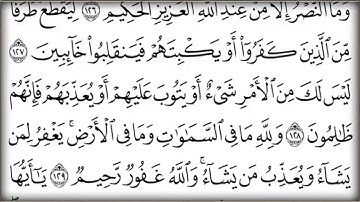 وَمَا ٱلنَّصْرُ إِلَّا مِنْ عِندِ ٱللَّهِ ٱلْعَزِيزِ ٱلْحَكِيمِ ١٢٦ لِيَقْطَعَ طَرَفًا
مِّنَ ٱلَّذِينَ كَفَرُوٓا۟ أَوْ يَكْبِتَهُمْ فَيَنقَلِبُوا۟ خَآئِبِينَ ١٢٧
لَيْسَ لَكَ مِنَ ٱلْأَمْرِ شَىْءٌ أَوْ يَتُوبَ عَلَيْهِمْ أَوْ يُعَذِّبَهُمْ فَإِنَّهُمْ
ظَٰلِمُونَ ١٢٨ وَلِلَّهِ مَا فِى ٱلسَّمَٰوَٰتِ وَمَا فِى ٱلْأَرْضِ ۚ يَغْفِرُ لِمَن
يَشَآءُ وَيُعَذِّبُ مَن يَشَآءُ ۚ وَٱللَّهُ غَفُورٌ رَّحِيمٌ ١٢٩ يَٰٓأَيُّهَا